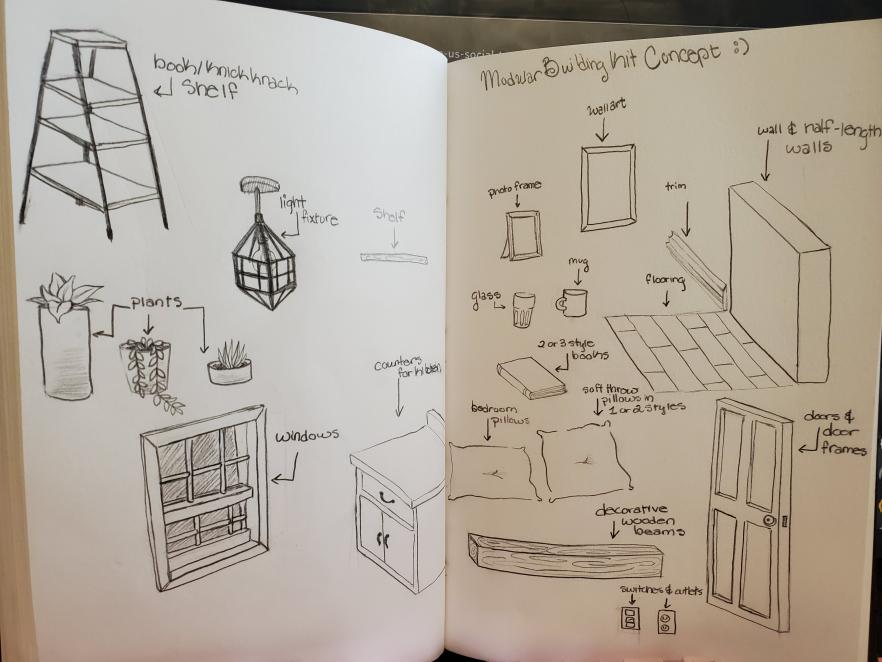 book/knickknack
shelf
light
fixture
shelf
plants
counters
for kitchen
windows
us-social
Modular Building Kit Concept :)
wall art
wall & half-length
walls
photo frame
trim
mug
glass
flooring
2 or 3 style
books
soft throw
pillows in
1 or 2 styles
bedroom
pillows
doors &
door
frames
decorative
wooden
beams
switches & outlets